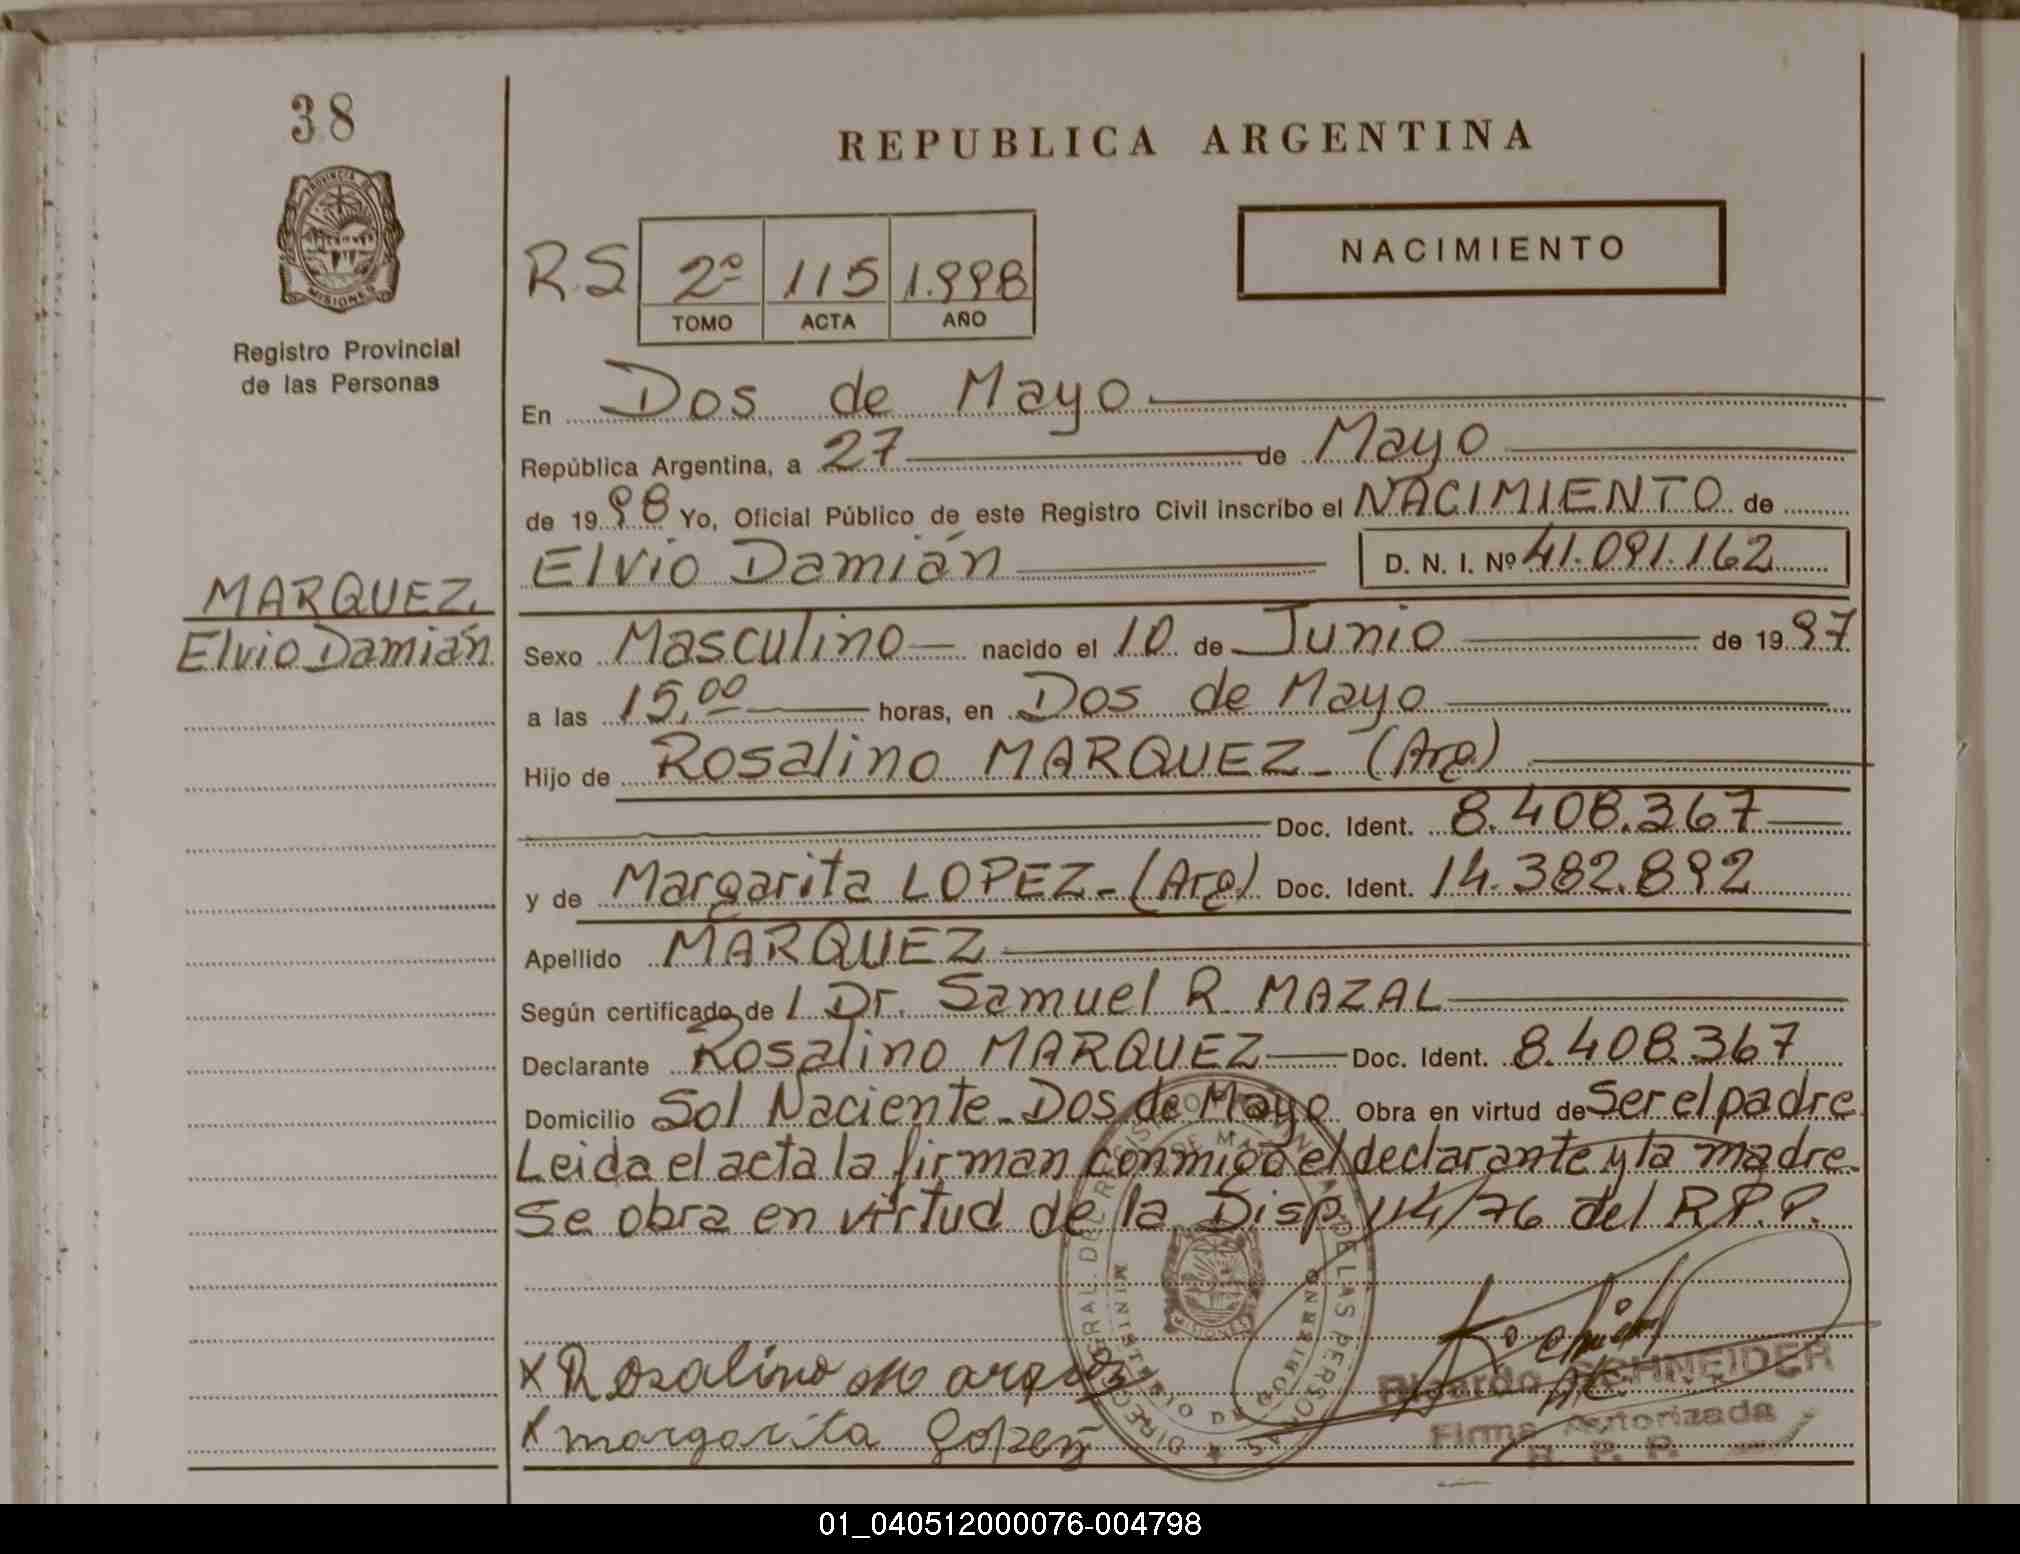 38
REPUBLICA ARGENTINA
PROVINCIA DE
MISIONES
Registro Provincial
de las Personas
NACIMIENTO
R.S 2º 115 1.998
TOMO ACTA AÑO
En Dos de Mayo
República Argentina, a 27 de Mayo
de 1998 Yo, Oficial Público de este Registro Civil inscribo el NACIMIENTO de
Elvio Damián D. N. I. Nº 41.091.162
MARQUEZ.
Elvio Damián
Sexo Masculino nacido el 10 de Junio de 1997
a las 15,00 horas, en Dos de Mayo
Hijo de Rosalino MARQUEZ - (Arg)
Doc. Ident. 8.408.367
y de Margarita LOPEZ - (Arg) Doc. Ident. 14.382.892
Apellido MARQUEZ
Según certificado de l Dr. Samuel R. MAZAL
Declarante Rosalino MARQUEZ Doc. Ident. 8.408.367
Domicilio Sol Naciente - Dos de Mayo Obra en virtud de Ser el padre
Leida el acta la firman conmigo el declarante y la madre.
Se obra en virtud de la Disp. 114/76 del R.P.P.
x Rosalino Marquez
x margarita Lopez
MINISTERIO DE GOBIERNO
Ricardo SCHNEIDER
Firma Autorizada
R. P. P.
01_040512000076-004798